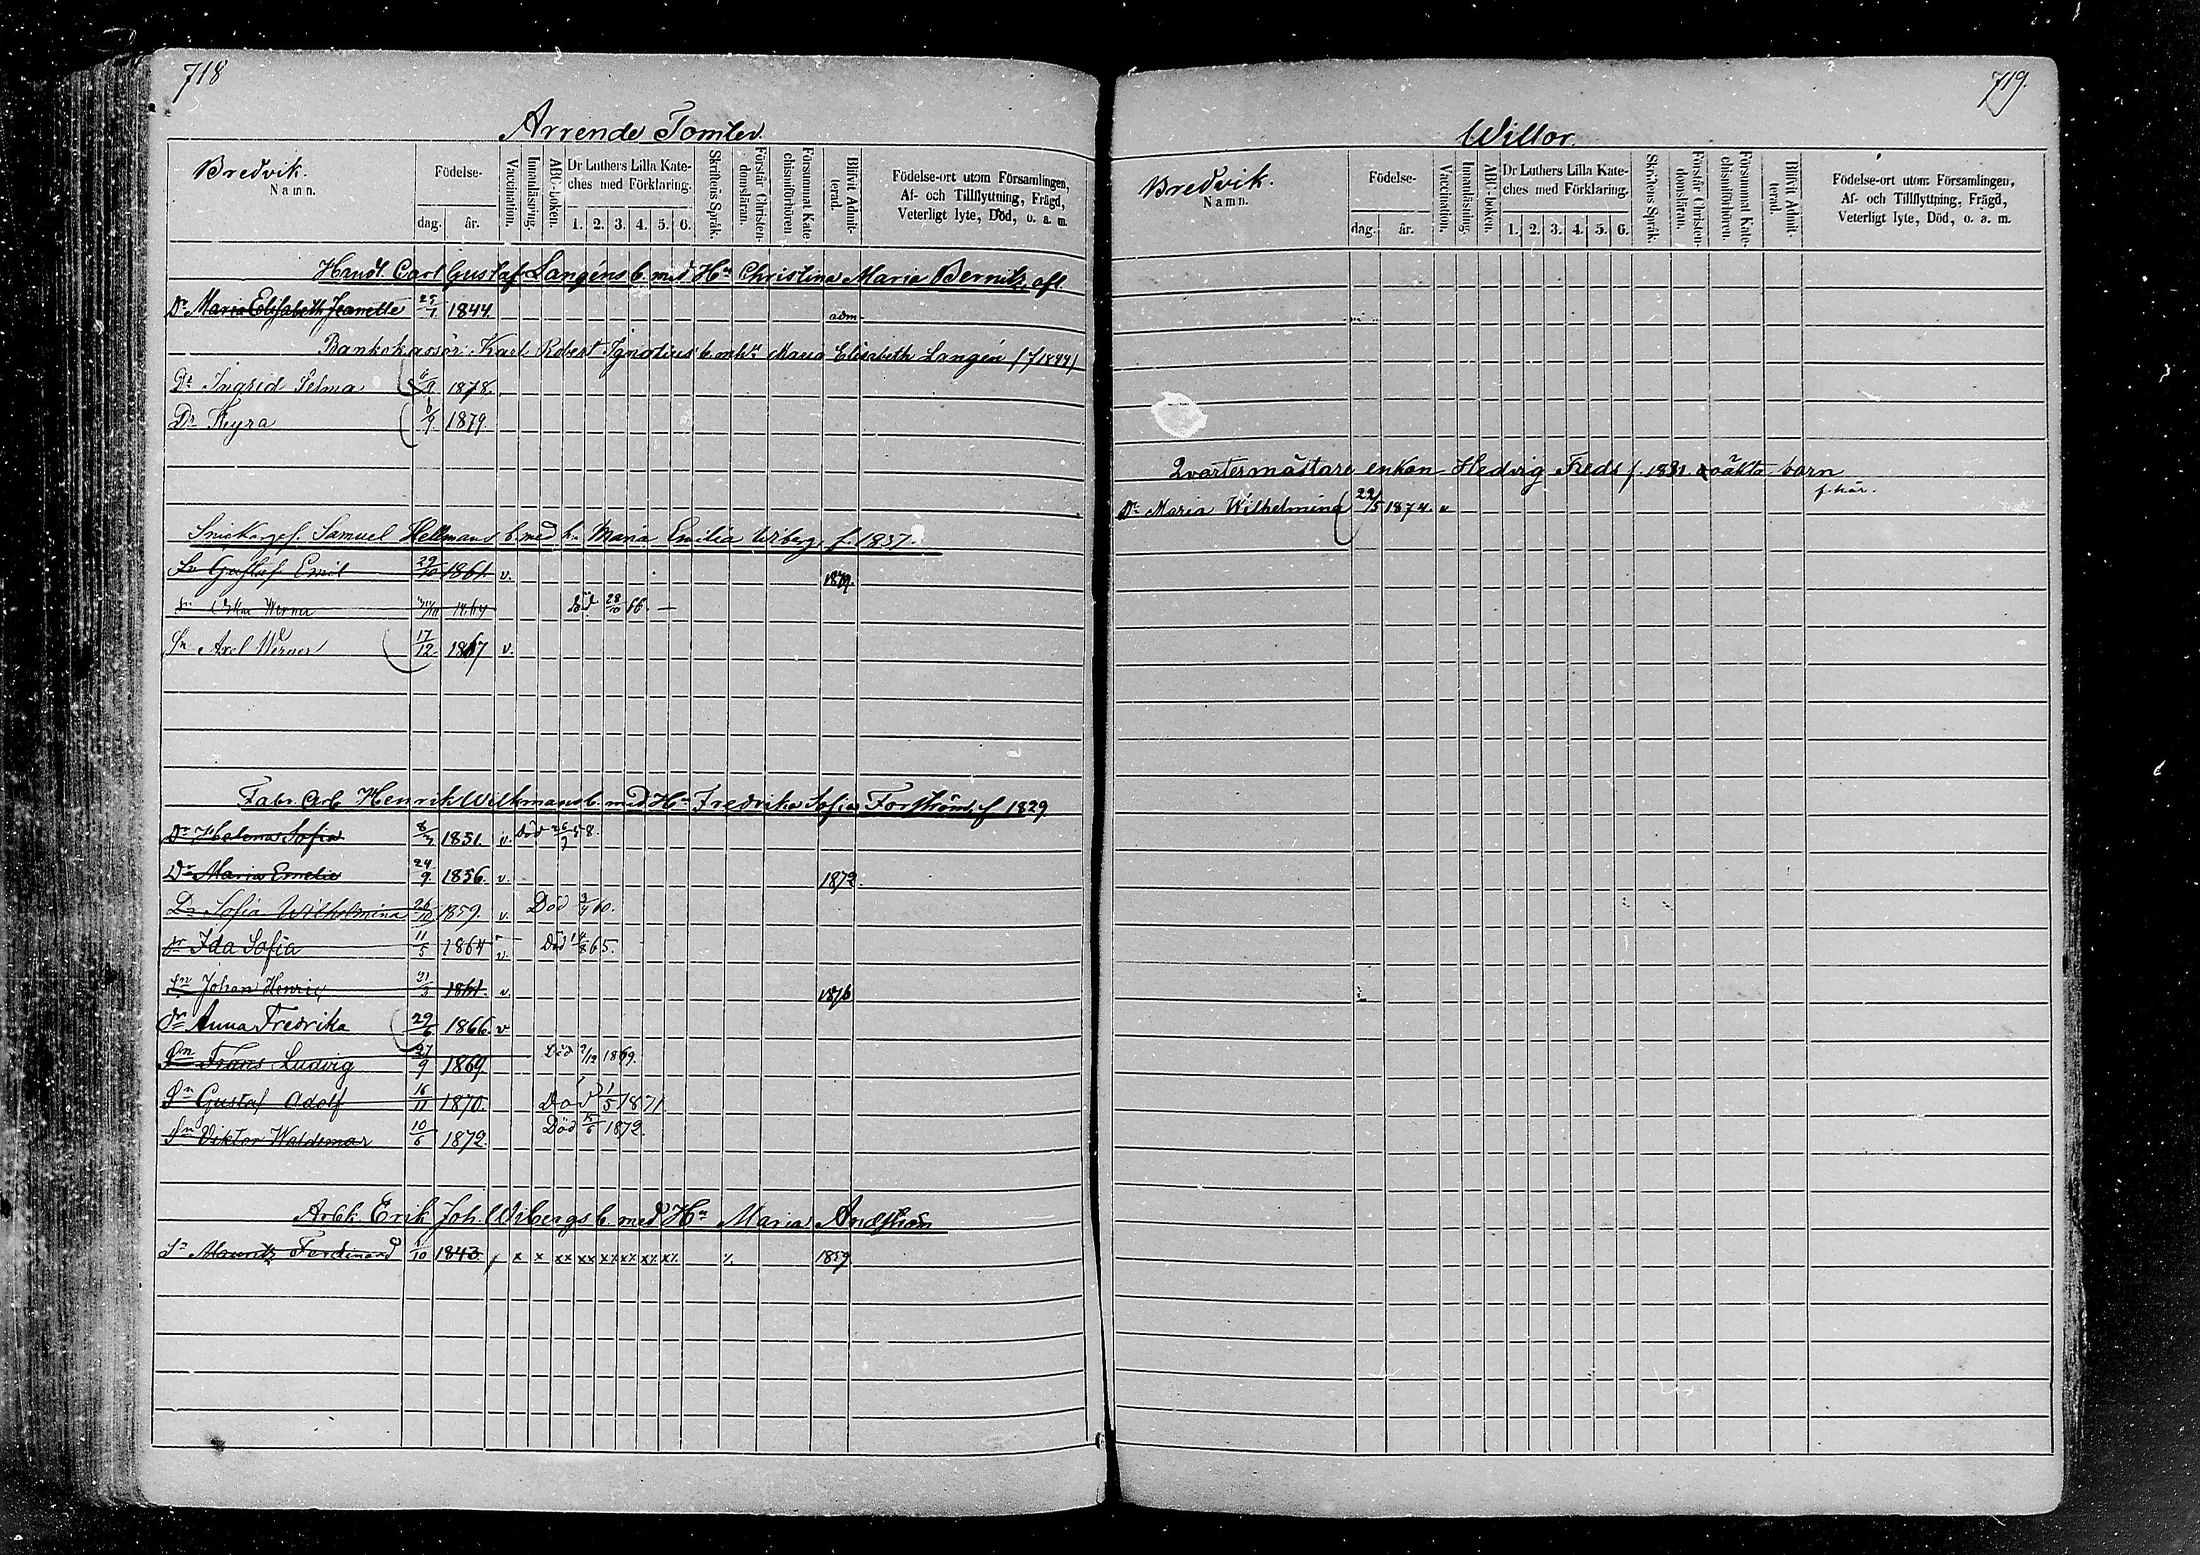 718
Arrende Tomter.
Bredvik.
Namn.
Födelse-
dag. år.
Vaccination.
Innanläsning.
ABC-boken.
Dr Luthers Lilla Kate-
ches med Förklaring.
1. 2. 3. 4. 5. 6.
Skriftens Språk.
Förstår Christen-
domsläran.
Försummat Kate
chismiförhören.
Blifvit Admit-
terad.
Födelse-ort utom Församlingen,
Af- och Tillflyttning, Frägd,
Veterligt lyte, Död, o. a. m.
Handl. Carl Gustaf Langéns b. med Hn Christina Maria Bernitz afl
Dr Maria Elisabeth Jeanette 25/1 1844. adm.
Bankokassör Karl Robert Ignatius b. m h. Maria Elisabeth Langén (f 1844)
Dr Ingrid Selma 6/9 1878.
Dr Thyra 6/9 1879
Snickareges. Samuel Hellmans b. med h. Maria Emilia Wiberg f. 1837.
Sn Gustaf Emil 29/10 1861. v. 1879.
Sn Oskar Werner Död 28/10 66.
Sn Axel Werner 17/12 1867 v.
Fabr. Arb. Henrik Wilkmans b. med Hn Fredrika Sofia Forsström, f 1829
Dr Helena Sofia 1851. v. Död 58.
Dr Maria Emelie 24/9 1856. v. 1872.
Dr Sofia Wilhelmina 26/10 1859. v. Död 60.
Dr Ida Sofia 11/5 1864 v. Död 14/8 65.
Sn Johan Henric 31/3 1861. v. 1876
Dr Anna Fredrika 29/6 1866. v
Sn Frans Ludvig 27/9 1869 Död /12 1869.
Sn Gustaf Adolf 16/11 1870. Död 1/5 1871.
Sn Viktor Waldemar 10/6 1872. Död 1872.
Arbk. Erik Joh. Wibergs b. med Hn Maria Andström
Sn Mauritz Ferdinand 1/10 1843 x x xx xx x% x% x% x% % 1859
719.
Willor.
Bredvik.
Namn.
Födelse-
dag. år.
Vaccination.
Innanläsning.
ABC-boken.
Dr Luthers Lilla Kate-
ches med Förklaring.
1. 2. 3. 4. 5. 6.
Skriftens Språk.
Förstår Christen-
domsläran.
Försummat Kate-
chismiförhören.
Blifvit Admit-
terad.
Födelse-ort utom Församlingen,
Af- och Tillflyttning, Frägd,
Veterligt lyte, Död, o. a. m.
Qvartermästare enkan Hedvig Freds f. 1831 oäkta barn
Dr Maria Wilhelmina 22/5 1874. v f. här.